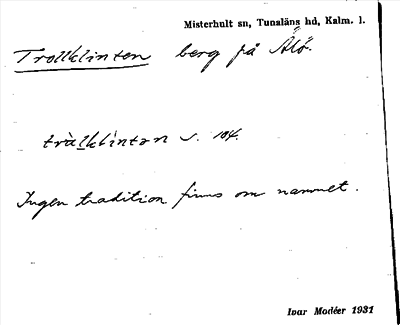 Misterhult sn, Tunaläns hd, Kalm. l.
Trollklinten berg på Älö.
tràlklíntən s. 104.
Ingen tradition finns om namnet.
Ivar Modéer 1931